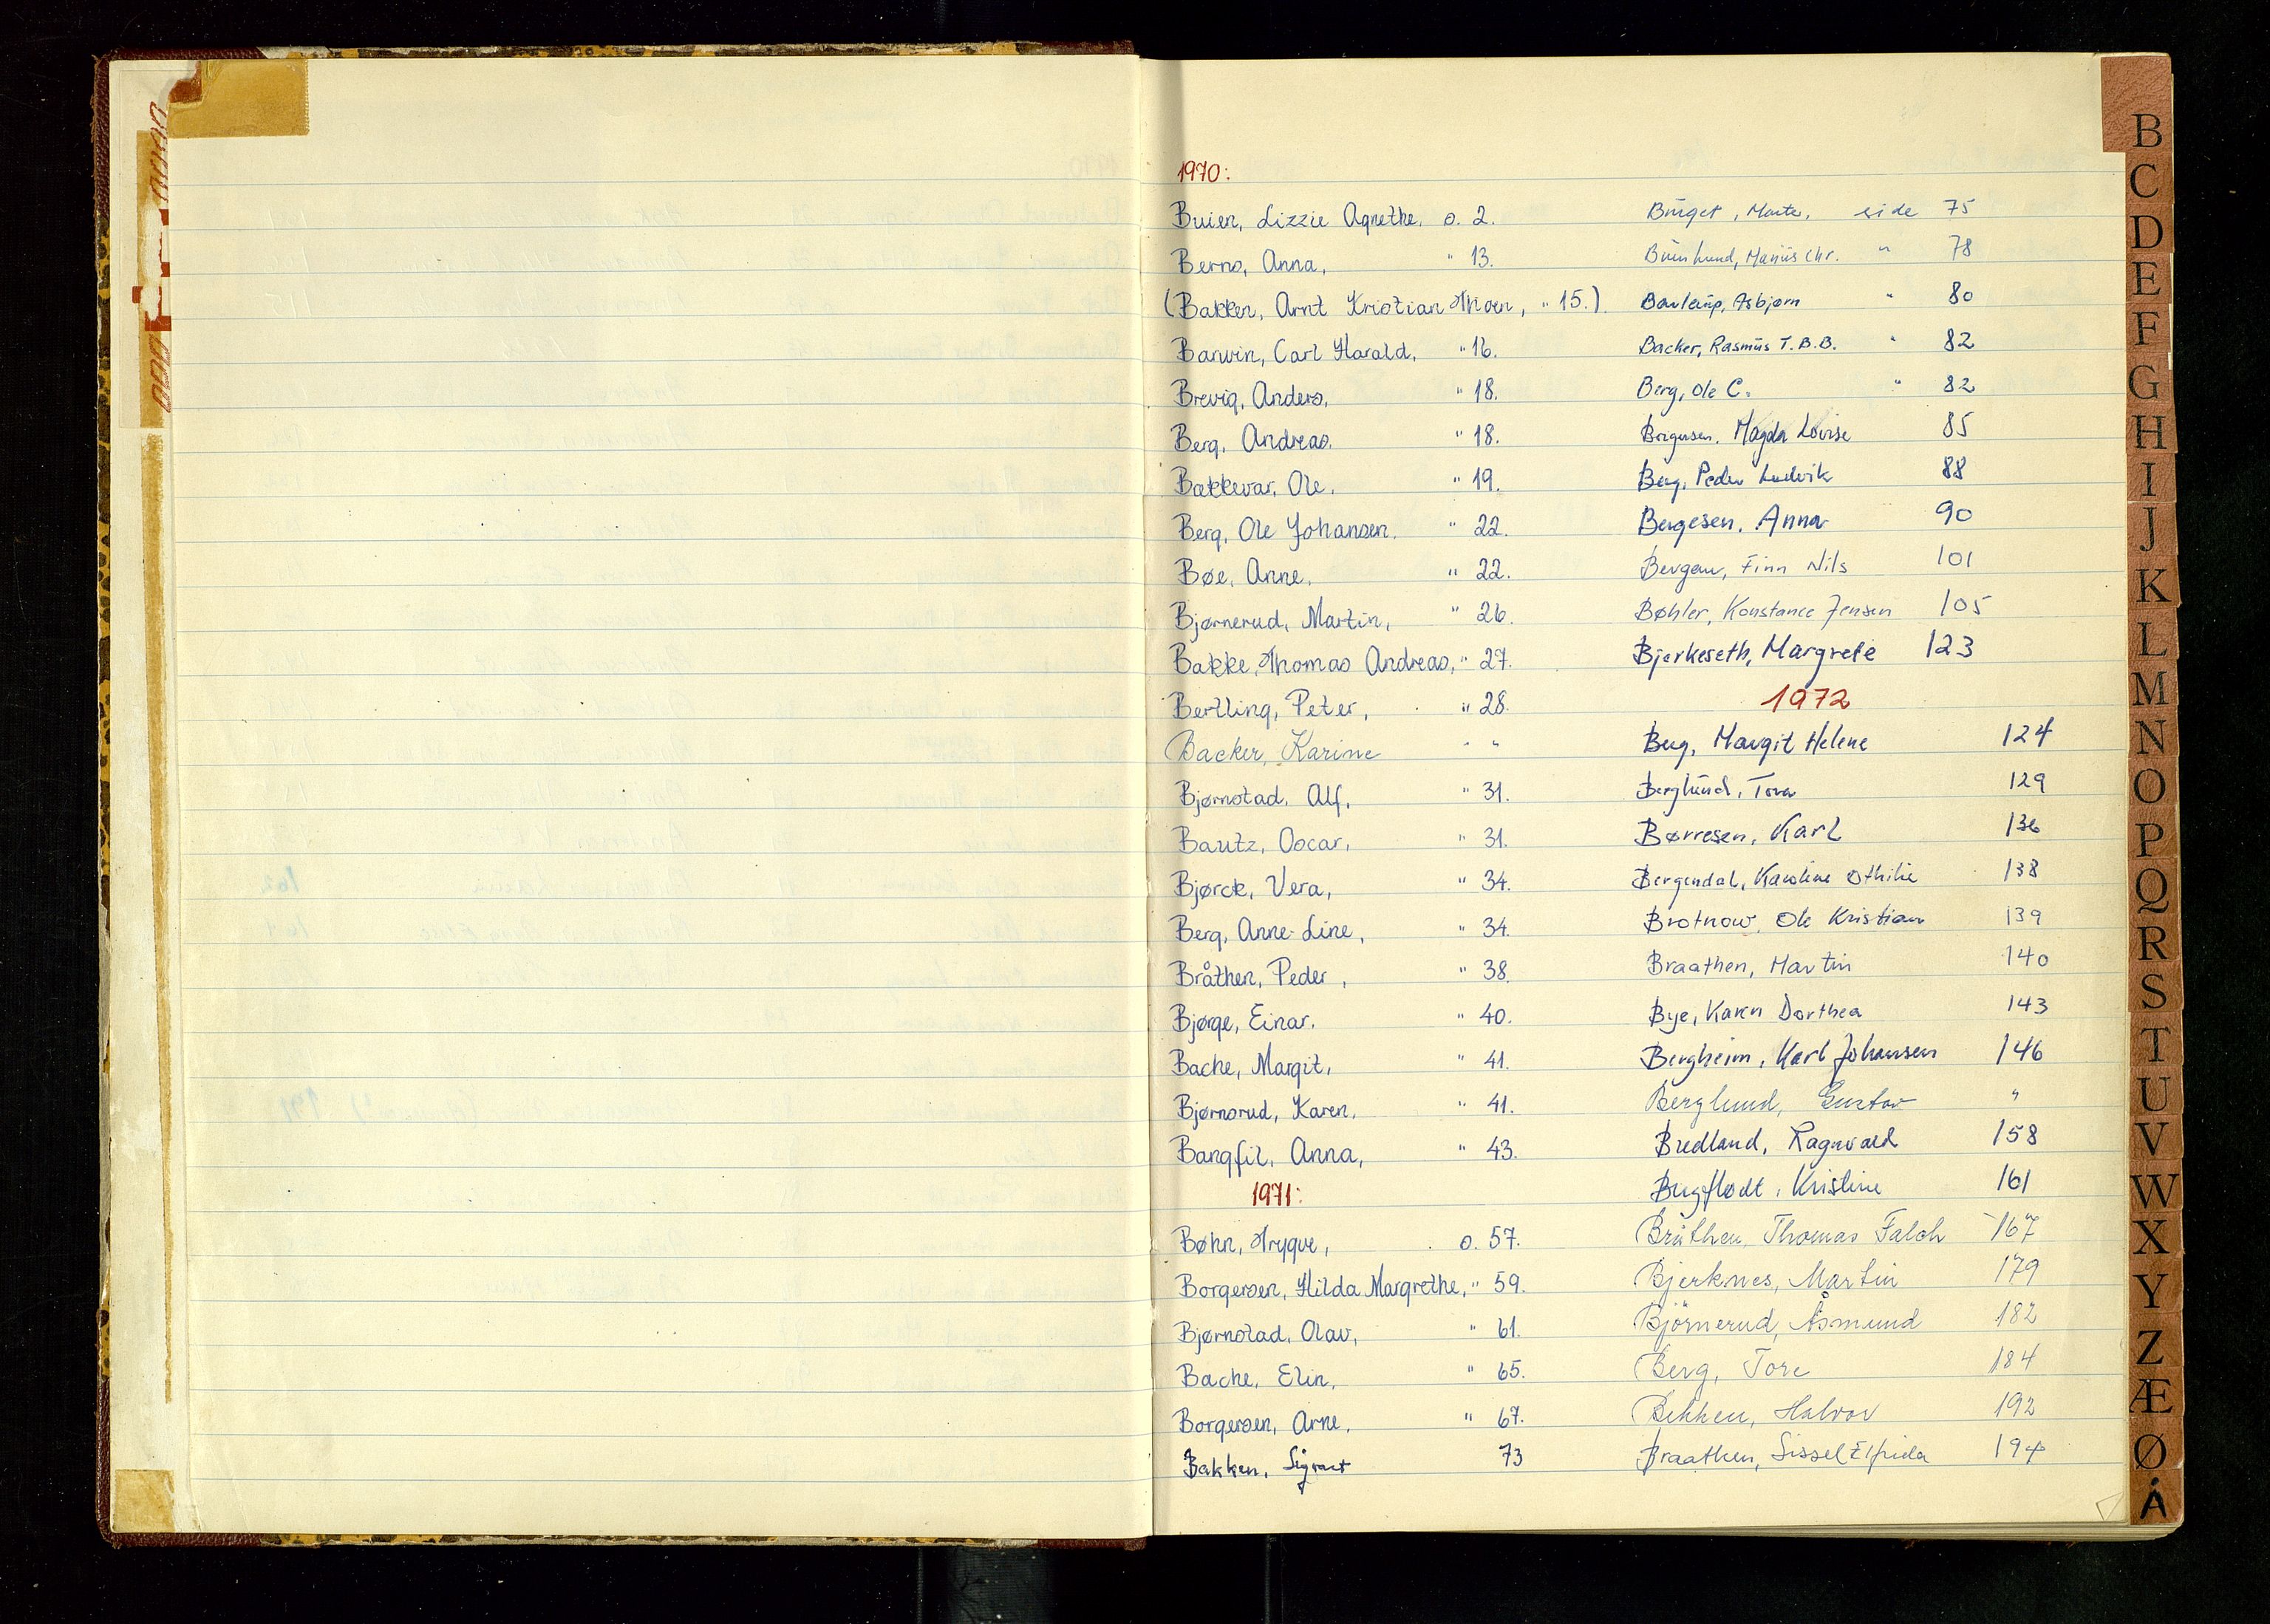 1970:
Buier, Lizzie Agnethe, s. 2.
Berns, Anna, " 13.
(Bakken, Arnt Kristian Thoen, " 15.)
Barwin, Carl Harald, " 16.
Brevig, Anders, " 18.
Berg, Andreas. " 18.
Bakkevar, Ole, " 19.
Berg, Ole Johansen. " 22.
Bøe, Anne, " 22.
Bjørnerud, Martin, " 26.
Bakke, Thomas Andreas, " 27.
Bertling, Peter, " 28.
Backer, Karine " "
Bjørnstad, Alf, " 31.
Bautz, Oscar, " 31.
Bjørck, Vera, " 34.
Berg, Anne-Line, " 34.
Bråthen, Peder, " 38.
Bjørge, Einar. " 40.
Bache, Margit, " 41.
Bjørnsrud, Karen, " 41.
Bangfil, Anna, " 43.
1971:
Bøhn, Trygve, s. 57.
Borgersen, Hilda Margrethe, " 59.
Bjørnstad, Olav, " 61.
Bache, Elin, " 65.
Borgersen, Arne, " 67.
Bakken, Sigvart 73
Bürget, Marte, side 75
Chr. " 78
Asbjørn " 80
Backer, Rasmus T.B.B. " 82
Berg, Ole C. " 82
Magda Lovise 85
Berg, Peder Ludvik 88
Bergesen, Anna 90
Bergan, Finn Nils 101
Bøhler, Konstance Jensen 105
Bjerkeseth, Margrete 123
1972
Berg, Margit Helene 124
Berglund, Tora 129
Børresen, Karl 136
Bergendal, Karoline Othilie 138
Brotnow, Ole Kristian 139
Braathen, Martin 140
Bye, Karen Dorthea 143
Bergheim, Karl Johansen 146
Berglund, Gustav "
Bredland, Ragnvald 158
Bergflødt, Kristine 161
Bråthen, Thomas Falch 167
Bjerknes, Martin 179
Björnerud, Åsmund 182
Berg, Tore 184
Bekken, Halvor 192
Braathen, Sissel Elfrida 194
B
C
D
E
F
G
H
I
J
K
L
M
N
O
P
Q
R
S
T
U
V
W
X
Y
Z
Æ
Ø
Å